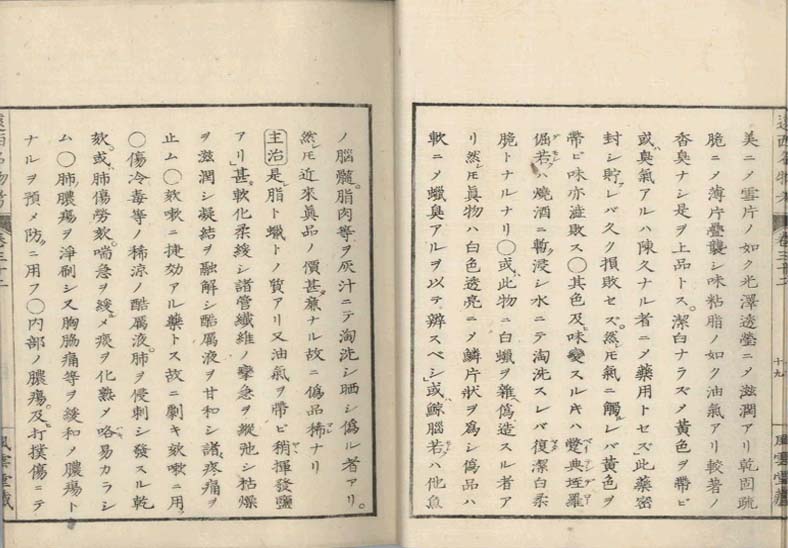 遠西名物考
卷三十二
十九
風雲堂藏
美ニ〆雪片ノ如ク光澤透瑩ニ〆滋潤アリ乾固疏
脆ニ〆薄片疊襲シ味粘脂ノ如ク油氣アリ較著ノ
香臭ナシ是ヲ上品トス。潔白ナラズ〆黄色ヲ帶ビ
或臭氣アルハ陳久ナル者ニ〆藥用トセズ」此藥密
封シ貯レバ久ク損敗セズ。然𪜈氣ニ觸レバ黄色ヲ
帶ビ味亦澁敗ス〇其色及味變スルキハ
倔若ハ燒酒ニ暫浸シ水ニテ淘洗スレバ復潔白柔
脆トナルナリ〇或此物ニ白蠟ヲ雜僞造スル者ア
リ然𪜈眞物ハ白色透亮ニ〆鱗片狀ヲ爲シ僞品ハ
軟ニ〆蠟臭アルヲ以テ辨スベシ」或鯨腦若ハ他魚
ノ腦髓。脂肉等ヲ灰汁ニテ淘洗シ晒シ僞ル者アリ。
然𪜈近來眞品ノ價甚廉ナル故ニ僞品稀ナリ
主治是脂ト蠟トノ質アリ又油氣ヲ帶ビ稍揮發鹽
アリ」甚軟化柔緩シ諸管纖維ノ攣急ヲ縱弛シ枯燥
ヲ滋潤シ凝結ヲ融解シ酷厲液ヲ甘和シ諸疼痛ヲ
止ム〇欬嗽ニ捷効アル藥トス故ニ劇キ欬嗽ニ用フ
〇傷冷毒等ノ稀涼ノ酷厲液。肺ヲ侵刺シ發スル乾
欬。或肺傷勞欬。喘急ヲ緩メ痰ヲ化熟〆咯易カラシ
ム〇肺膿瘍ヲ淨刷シ又胸脇痛等ヲ緩和ノ膿瘍ト
ナルヲ預メ防ニ用フ〇内部ノ膿瘍。及打撲傷ニテ
卷三十二
風雲堂藏